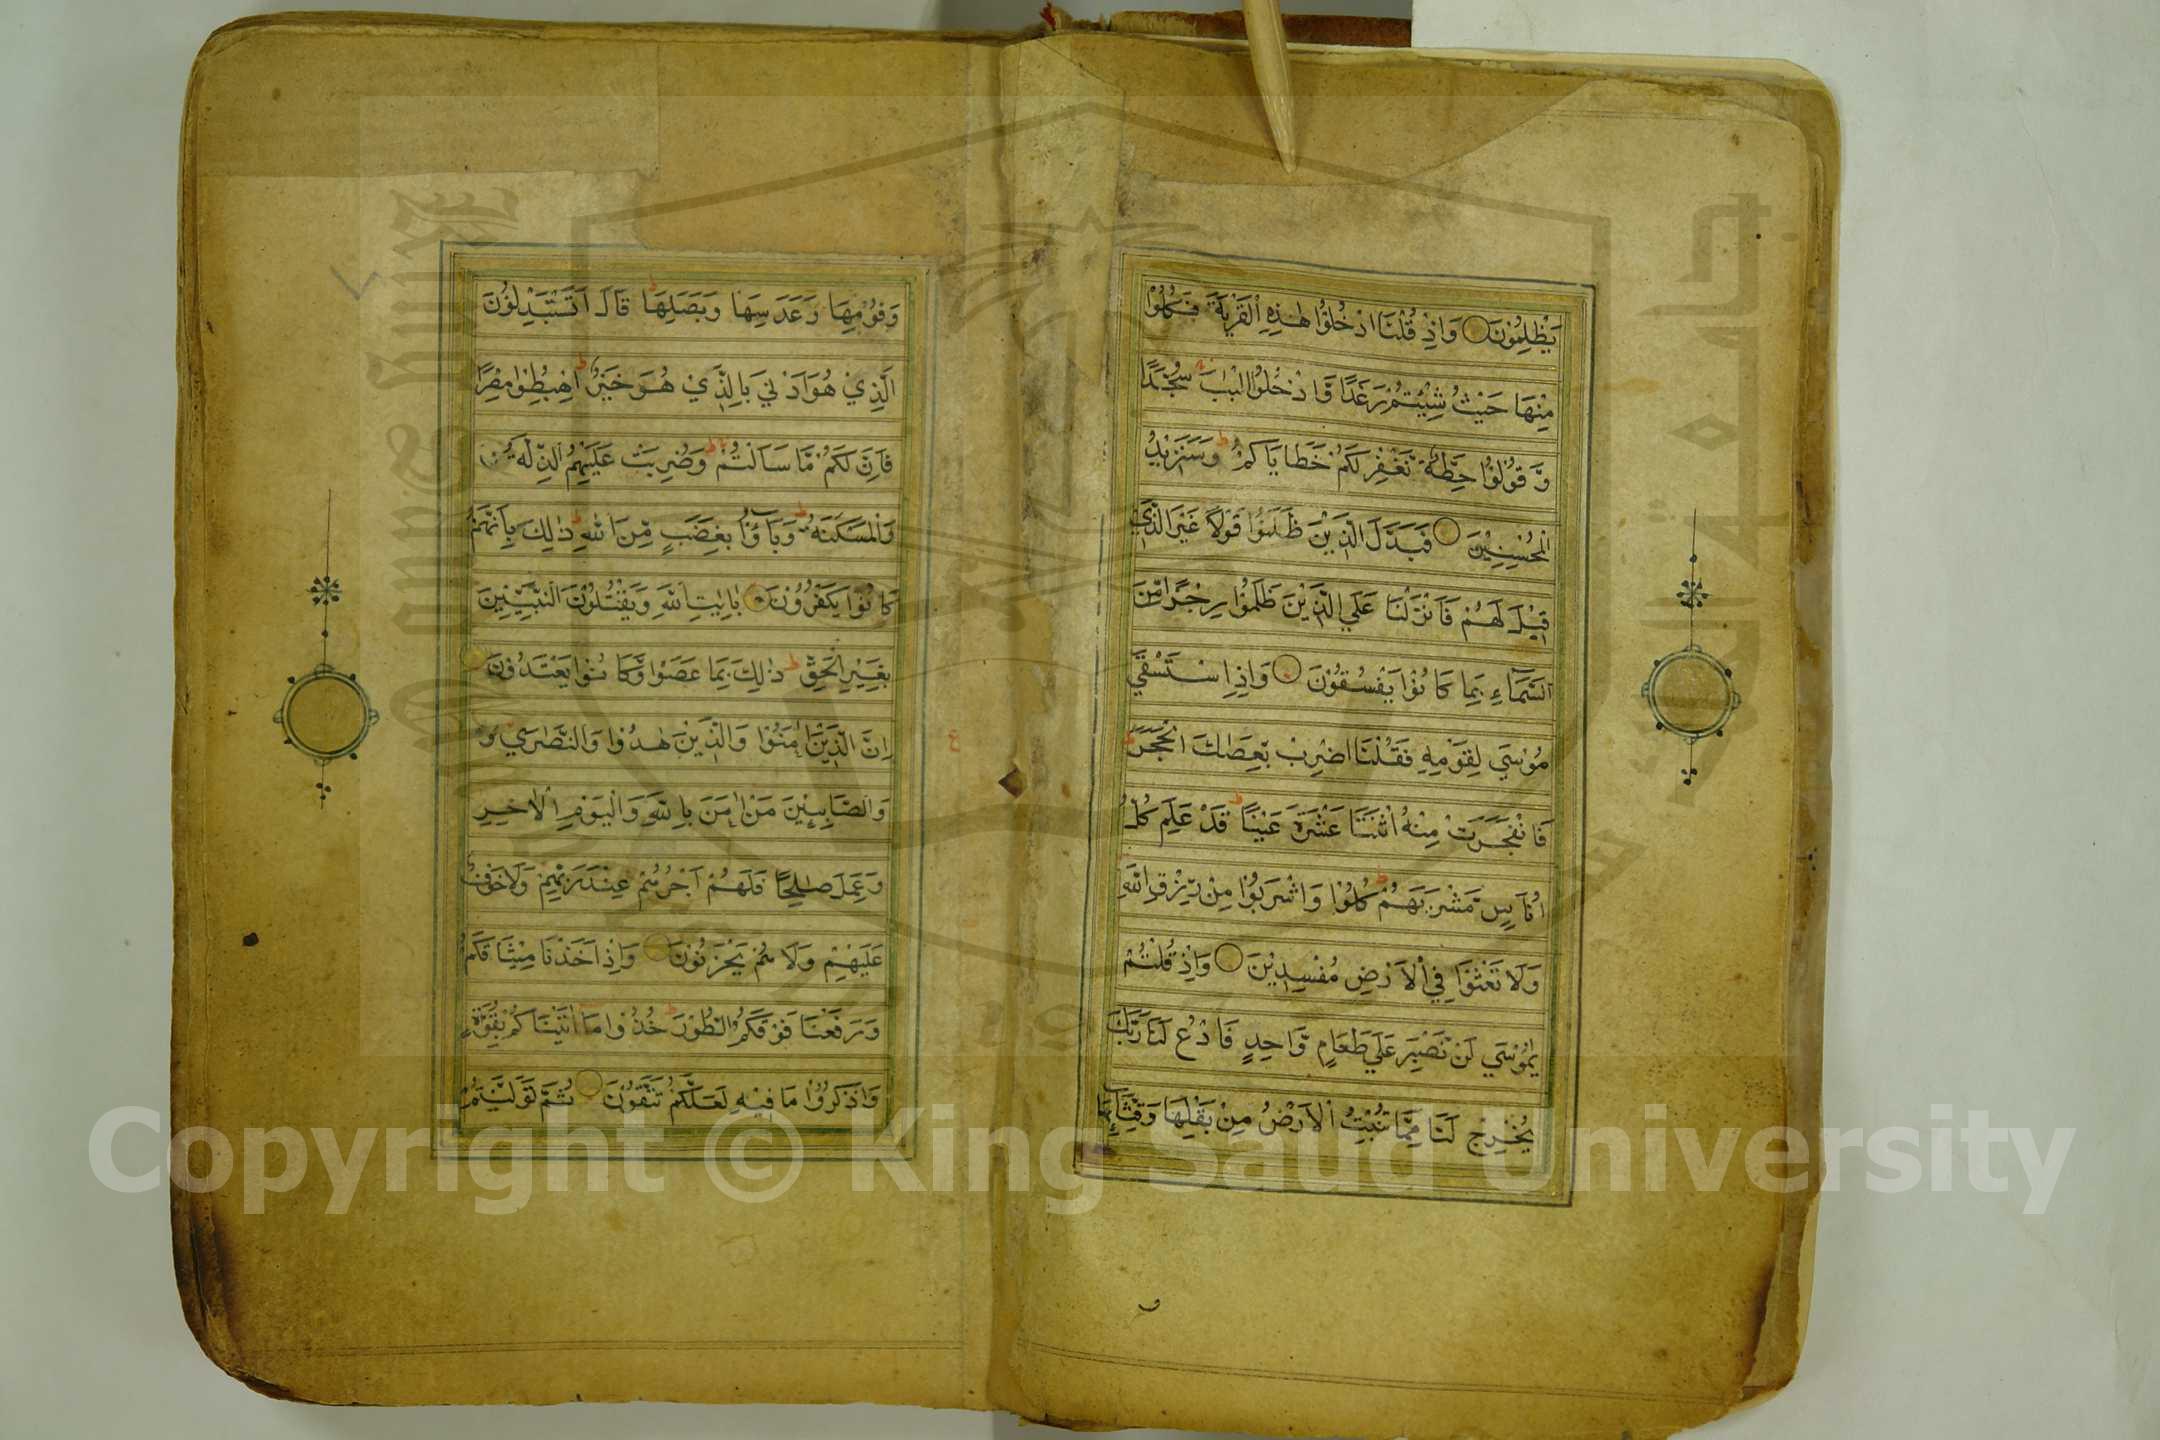 يَظْلِمُوْنَ وَاِذْ قُلْنَا ادْخُلُوْا هٰذِهِ الْقَرْيَةَ فَكُلُوْا
مِنْهَا حَيْثُ شِئْتُمْ رَغَدًا وَّادْخُلُوا الْبَابَ سُجَّدًا
وَّقُوْلُوْا حِطَّةٌ نَغْفِرْ لَكُمْ خَطَايَاكُمْ وَسَنَزِيْدُ
الْمُحْسِنِيْنَ فَبَدَّلَ الَّذِيْنَ ظَلَمُوْا قَوْلًا غَيْرَ الَّذِيْ
قِيْلَ لَهُمْ فَاَنْزَلْنَا عَلَى الَّذِيْنَ ظَلَمُوْا رِجْزًا مِّنَ
السَّمَآءِ بِمَا كَانُوْا يَفْسُقُوْنَ وَاِذِ اسْتَسْقٰى
مُوْسٰي لِقَوْمِهٖ فَقُلْنَا اضْرِبْ بِّعَصَاكَ الْحَجَرَ
فَانْفَجَرَتْ مِنْهُ اثْنَتَا عَشْرَةَ عَيْنًا قَدْ عَلِمَ كُلُّ
اُنَاسٍ مَّشْرَبَهُمْ كُلُوْا وَاشْرَبُوْا مِنْ رِّزْقِ اللّٰهِ
وَلَا تَعْثَوْا فِي الْاَرْضِ مُفْسِدِيْنَ وَاِذْ قُلْتُمْ
يٰمُوْسٰي لَنْ نَّصْبِرَ عَلٰي طَعَامٍ وَّاحِدٍ فَادْعُ لَنَا رَبَّكَ
يُخْرِجْ لَنَا مِمَّا تُنْبِتُ الْاَرْضُ مِنْ بَقْلِهَا وَقِثَّآئِهَا
و
وَفُوْمِهَا وَعَدَسِهَا وَبَصَلِهَا قَالَ اَتَسْتَبْدِلُوْنَ
الَّذِيْ هُوَ اَدْنٰي بِالَّذِيْ هُوَ خَيْرٌ اِهْبِطُوْا مِصْرًا
فَاِنَّ لَكُمْ مَّا سَاَلْتُمْ وَضُرِبَتْ عَلَيْهِمُ الذِّلَّةُ
وَالْمَسْكَنَةُ وَبَآؤُا بِغَضَبٍ مِّنَ اللّٰهِ ذٰلِكَ بِاَنَّهُمْ
كَانُوْا يَكْفُرُوْنَ بِاٰيٰتِ اللّٰهِ وَيَقْتُلُوْنَ النَّبِيِّيْنَ
بِغَيْرِ الْحَقِّ ذٰلِكَ بِمَا عَصَوْا وَّكَانُوْا يَعْتَدُوْنَ
اِنَّ الَّذِيْنَ اٰمَنُوْا وَالَّذِيْنَ هَادُوْا وَالنَّصٰرٰي
وَالصَّابِئِيْنَ مَنْ اٰمَنَ بِاللّٰهِ وَالْيَوْمِ الْاٰخِرِ
وَعَمِلَ صَالِحًا فَلَهُمْ اَجْرُهُمْ عِنْدَ رَبِّهِمْ وَلَا خَوْفٌ
عَلَيْهِمْ وَلَا هُمْ يَحْزَنُوْنَ وَاِذْ اَخَذْنَا مِيْثَاقَكُمْ
وَرَفَعْنَا فَوْقَكُمُ الطُّوْرَ خُذُوْا مَا اٰتَيْنَاكُمْ بِقُوَّةٍ
وَاذْكُرُوْا مَا فِيْهِ لَعَلَّكُمْ تَتَّقُوْنَ ثُمَّ تَوَلَّيْتُمْ
ع
Copyright © King Saud University